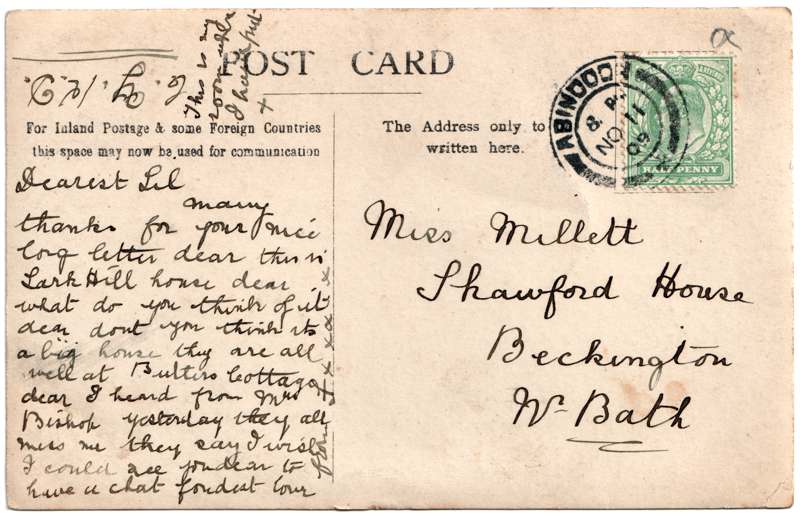 This is my
room where
I have put
x
POST CARD
For Inland Postage & some Foreign Countries
this space may now be used for communication
The Address only to
written here.
ABINGDON
8. PM
NO 11
09
HALF PENNY
a
Dearest Lil
many
thanks for your nice
long letter dear this is
Lark Hill house dear
what do you think of it
dear dont you think its
a big house they are all
well at Butlers Cottage
dear I heard from Mrs
Bishop yesterday they all
miss me they say I wish
I could see you dear to
have a chat fondest love
from
x x x x x x x
Miss Millett
Shawford House
Beckington
Nr Bath